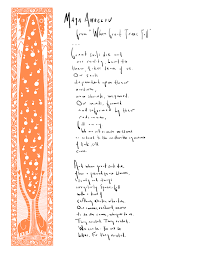 MAYA ANGELOU
from "When Great Trees Fall"
Great souls die and
our reality, bound to
them, takes leave of us.
Our souls,
dependent upon their
nurture,
now shrink, wizened.
Our minds, formed
and informed by their
radiance,
fall away.
We are not so much maddened
as reduced to the unutterable ignorance
of dark, cold
caves.
And when great souls die,
after a period peace blooms,
slowly and always
irregularly. Spaces fill
with a kind of
soothing electric vibration.
Our senses, restored, never
to be the same, whisper to us.
They existed. They existed.
We can be. Be and be
better. For they existed.